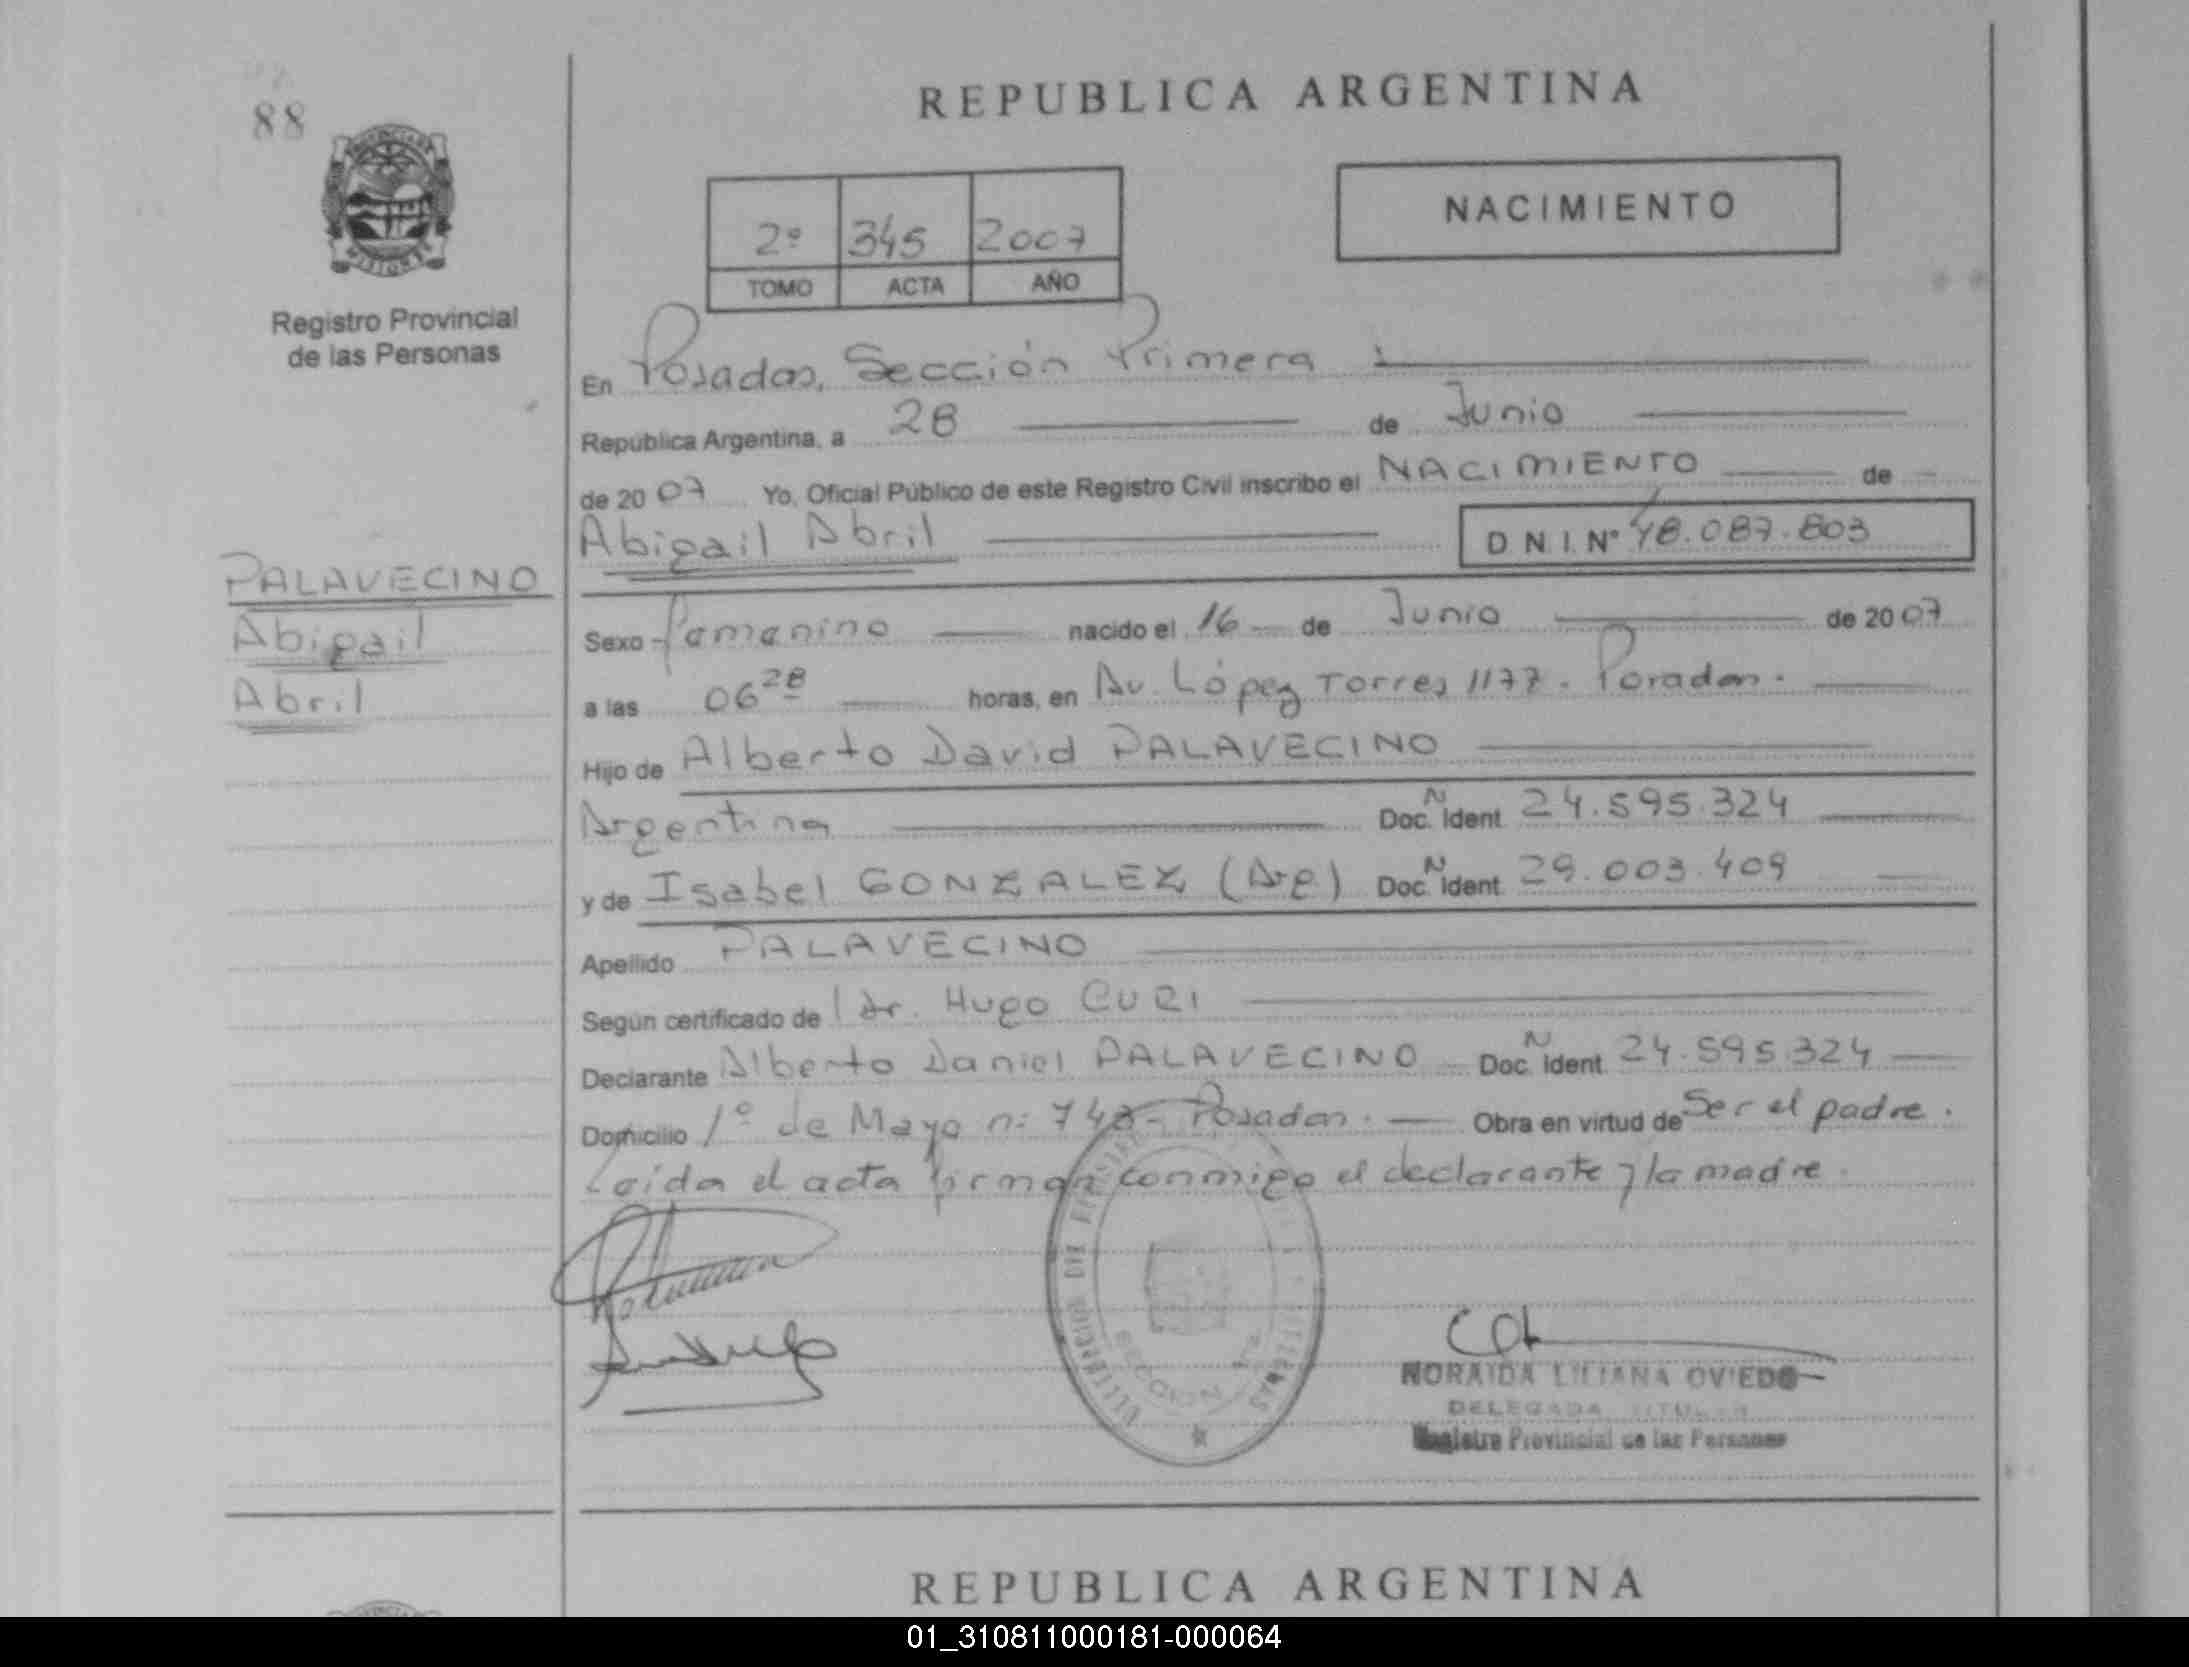 88
REPUBLICA ARGENTINA
NACIMIENTO
2º 345 2007
TOMO ACTA AÑO
Registro Provincial
de las Personas
En Posadas, Sección Primera
República Argentina, a 28 de Junio
de 2007 Yo, Oficial Público de este Registro Civil inscribo el NACIMIENTO de
Abigail Abril D N I. Nº 48.087.803
PALAVECINO
Abigail
Abril
Sexo Femenino nacido el 16 de Junio de 2007
a las 06 28 horas, en Av. López Torres 1177. Posadas.
Hijo de Alberto David PALAVECINO
Argentina Doc. N Ident. 24.595.324
y de Isabel GONZALEZ (Arg) Doc. N Ident. 29.003.409
Apellido PALAVECINO
Según certificado de Dr. Hugo CURI
Declarante Alberto Daniel PALAVECINO Doc. N Ident. 24.595.324
Domicilio 1º de Mayo n: - Posadas. Obra en virtud de Ser el padre.
Leida el acta firman conmigo el declarante y la madre.
SECCION 1ra
NORAIDA LILIANA OVIEDO
DELEGADA TITULAR
Registro Provincial de las Personas
REPUBLICA ARGENTINA
01_310811000181-000064